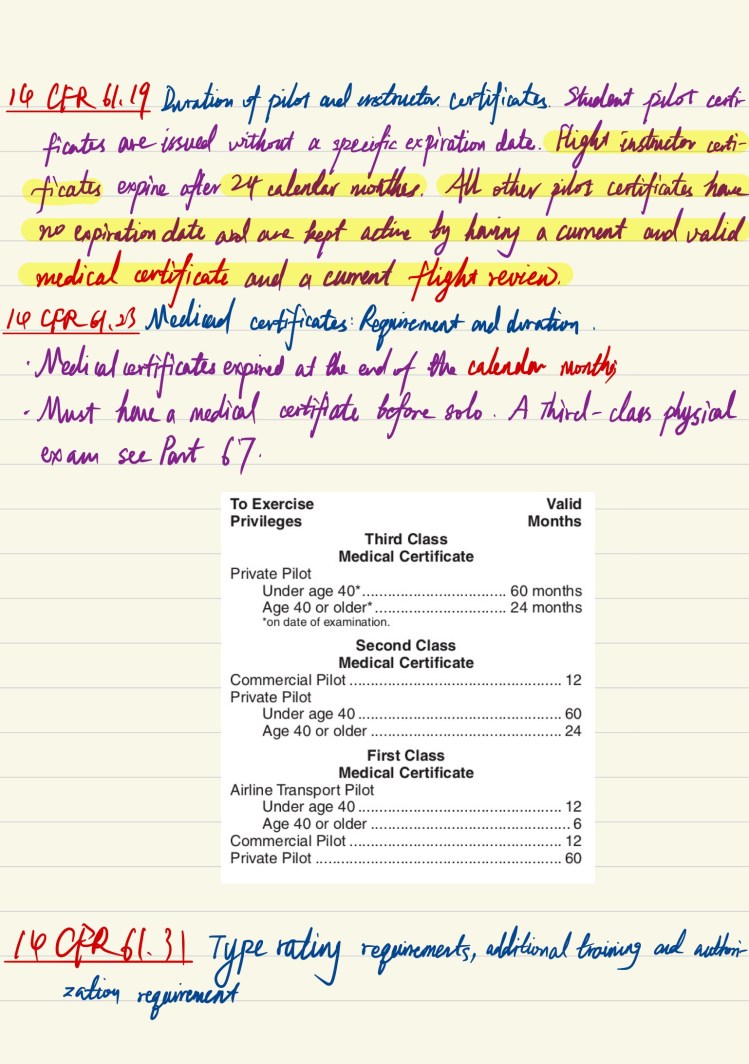 14 CFR 61.19 Duration of pilot and instructor certificates. Student pilot certi-
ficates are issued without a specific expiration date. Flight instructor certi-
ficates expire after 24 calendar months. All other pilot certificates have
no expiration date and are kept active by having a current and valid
medical certificate and a current flight review.
14 CFR 61.23 Medical certificates: Requirement and duration.
· Medical certificates expired at the end of the calendar months
· Must have a medical certificate before solo. A Third-class physical
exam see Part 67.
To Exercise Valid
Privileges Months
Third Class
Medical Certificate
Private Pilot
Under age 40*.................................. 60 months
Age 40 or older*............................... 24 months
*on date of examination.
Second Class
Medical Certificate
Commercial Pilot .................................................. 12
Private Pilot
Under age 40 ................................................ 60
Age 40 or older ............................................. 24
First Class
Medical Certificate
Airline Transport Pilot
Under age 40 ................................................ 12
Age 40 or older ............................................... 6
Commercial Pilot .................................................. 12
Private Pilot .......................................................... 60
14 CFR 61.31 Type rating requirements, additional training and authori-
zation requirement